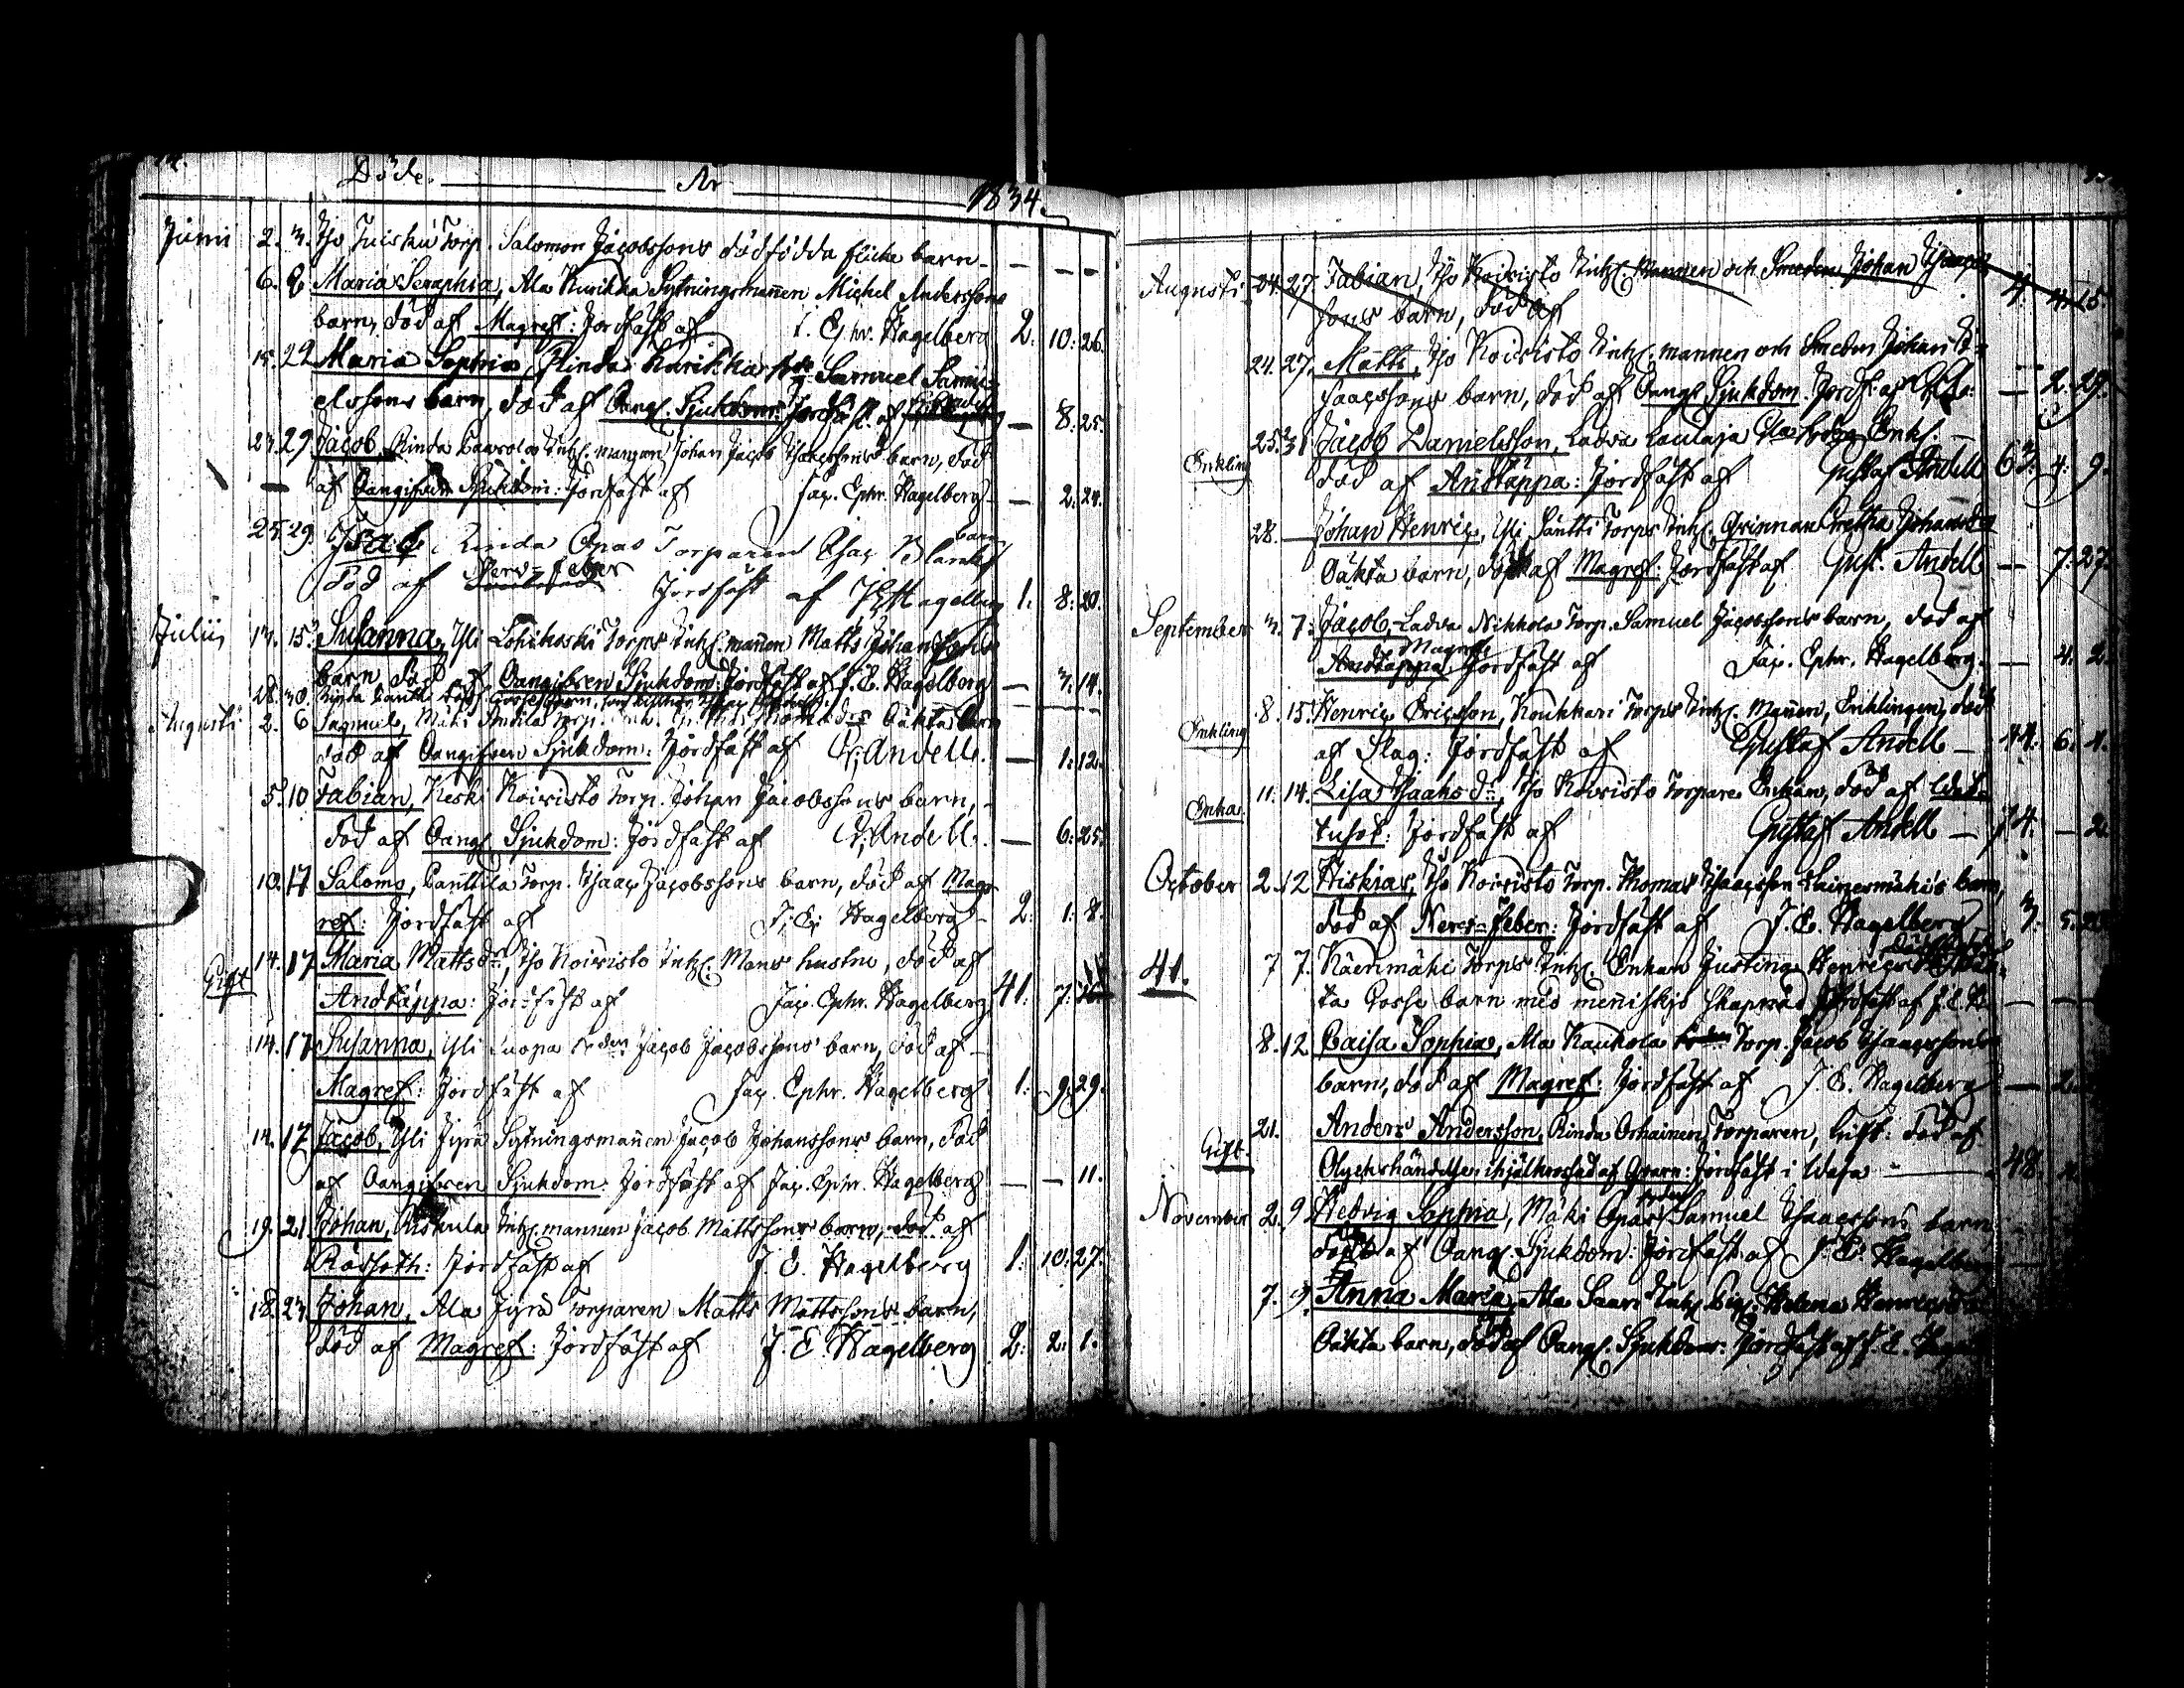 Döde. År 1834.
Junii 2. 3. Iso Tuisku Torp. Salomon Jacobssons dödfödda flicke barn — — —
6. 8 Maria Seraphia, Ala Kurikka Sytningsmannen Michel Anderssons
barn, död af Magref: Jordfäst af J. Ephr. Hagelberg 2. 10: 26.
15. 22 Maria Sophia, Rinda Kurikka Samuel Samu-
elssons barn, död af Oangf. Sjukdom: Jordfäst af — 8: 25.
23. 29 Jacob, Rinda Inhs. mannen Johan Jacob Isacssons barn, död
af Oangifven Sjukdom: Jordfäst af Jac. Ephr. Hagelberg — 2: 24.
25. 29. Isac, Rinda Opas Torparen Isac barn
död af Nerv-feber Jordfäst af J E Hagelberg 1: 8: 20.
Julii 13. 15. Susanna, Yli Torps Inhs. mannen Matts Johanssons
barn, död af Oangifven Sjukdom: Jordfäst af J. E. Hagelberg — 3: 14.
28. 30.
Augusti 2. 6 Samuel, Mäki Torp. Oäkta barn
död af Oangifven Sjukdom: Jordfäst af G. Andell. — 1: 12.
5. 10 Fabian, Keski Koivisto Torp. Johan Jacobssons barn,
död af Oangf. Sjukdom: Jordfäst af G. Andell. — 6: 25.
10. 17 Salomo, Panttila Torp. Isaac Jacobssons barn, död af Mag-
ref: Jordfäst af J. E. Hagelberg — 2: 1: 8.
Gift 14. 17 Maria Mattsdr, Iso Koivisto Inhs. Mans hustru, död af
Andtäppa: Jordfäst af Jac. Ephr. Hagelberg 41: 7:
14. 17 Susanna, Yli Luopa Jacob Jacobssons barn, död af —
Magref: Jordfäst af Jac. Ephr. Hagelberg 1: 9: 29.
14. 17 Jacob, Yli Jyrä Sytningsmannen Jacob Johanssons barn, död
af Oangifven Sjukdom: Jordfäst af Jac. Ephr. Hagelberg — — 11.
19. 21 Johan, Inhs. mannen Jacob Mattssons barn, död af
Rödsoth: Jordfäst af J. E. Hagelberg 1: 10: 27.
18. 23 Johan, Ala Jyrä Torparen Matts Mattssons barn,
död af Magref: Jordfäst af J. E. Hagelberg 2: 2: 1.
Augusti 24. 27. Fabian, Iso Koivisto Inhs. Mannen och Smeden Johan Isaacs
sons barn, död af
24. 27. Matts, Iso Koivisto Inhs. mannen och Smeden Johan I-
saacssons barn, död af Oangf. Sjukdom. Jordf. af — 2: 29.
Enkling 25. 31. Jacob Danielsson, Ladva Laulaja Enkl. —
död af Andtäppa: Jordfäst af Gustaf Andell 63: 4: 9.
28. — Johan Henric, Yli Säntti Torps Inhs. Qvinnan Johansdr
Oäkta barn, död af Magref: Jordfäst af Gust. Andell — 7: 27.
September 3. 7. Jacob, Ladva Nikkola Torp. Samuel Jacobssons barn, död af
Magref: Jordfäst af Jac. Ephr. Hagelberg. — 4: 2.
Enkling 8. 15. Henric Ericsson, Koukkari Torps Inhs. Mannen, Enklingen, död
af Slag: Jordfäst af Gustaf Andell — 44: 6: 4.
Enka. 11. 14. Lisa Isaksdr, Iso Koivisto Torpare Enkan, död af
Jordfäst af Gustaf Andell — 74. — 2.
October 2. 12 Hiskias, Iso Koivisto Torp. Thomas Isaacsson barn,
död af Nerv-Feber: Jordfäst af J. E. Hagelberg 3:
41. 7 7. Torps Inhs. Enkan Justina
ta Gosse barn med menniskjo skapnad Jordfäst af J. E. — — —
8. 12 Caisa Sophia, Ala Kaukola Torp. Jacob Isaacssons
barn, död af Magref: Jordfäst af J. E. Hagelberg — 2.
Gift. 21. Anders Andersson, Rinda Orhainen Torparen, Gift: död af
Olyckshändelse: ihjälkrossad af Qvarn: Jordfäst i Wasa — 48
November 2. 9 Hedvig Sophia, Mäki Opas Samuel Isaacssons barn,
död af Oangf. Sjukdom: Jordfäst af J. E. Hagelberg
7. 9. Anna Maria, Ala Saari Inhs. Pig. Helena
Oäkta barn, död af Oangf. Sjukdom: Jordfäst af J. E.